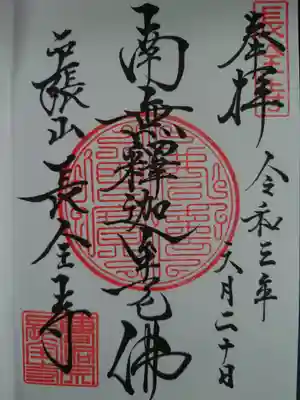 奉拝
令和三年
六月二十日
南無釋迦牟尼佛
張山 長全寺
長全寺